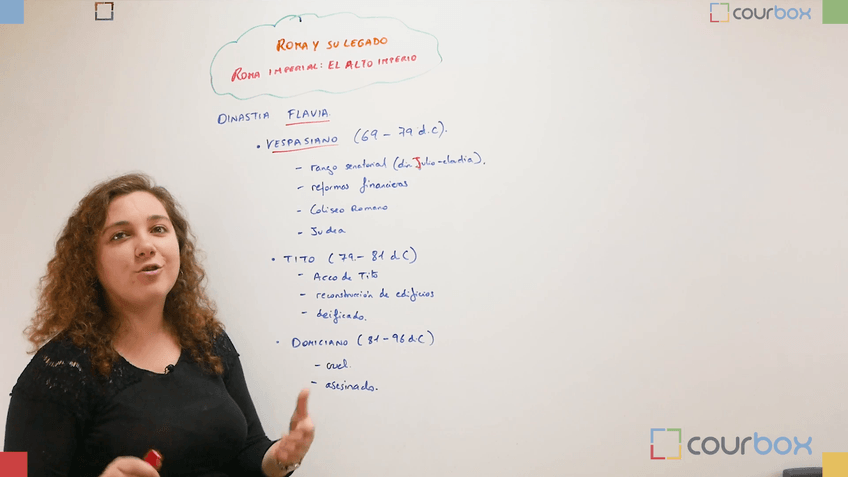 courbox
ROMA Y SU LEGADO
ROMA IMPERIAL: EL ALTO IMPERIO
DINASTIA FLAVIA.
• VESPASIANO (69 - 79 d.C).
- rango senatorial (din. Julio-claudia).
- reformas financieras
- Coliseo Romano
- Judea
• TITO (79 - 81 d.C)
- Arco de Tito
- reconstrucción de edificios
- deificado.
• DOMICIANO (81 - 96 d.C)
- cruel.
- asesinado.
courbox